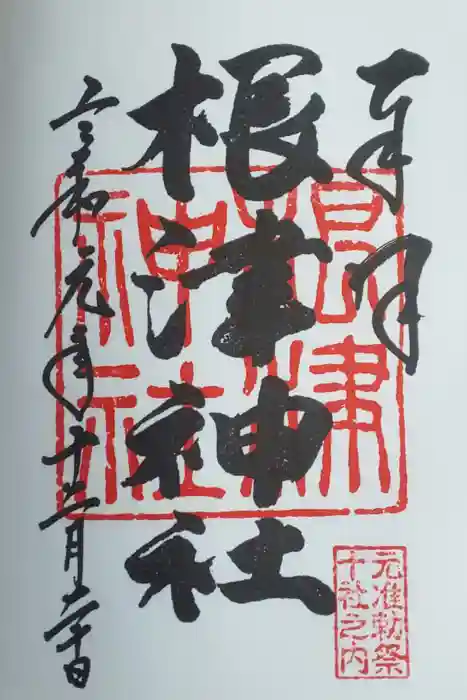 奉拝
根津神社
令和元年十二月
根津
神社
元准勅祭
十社之内